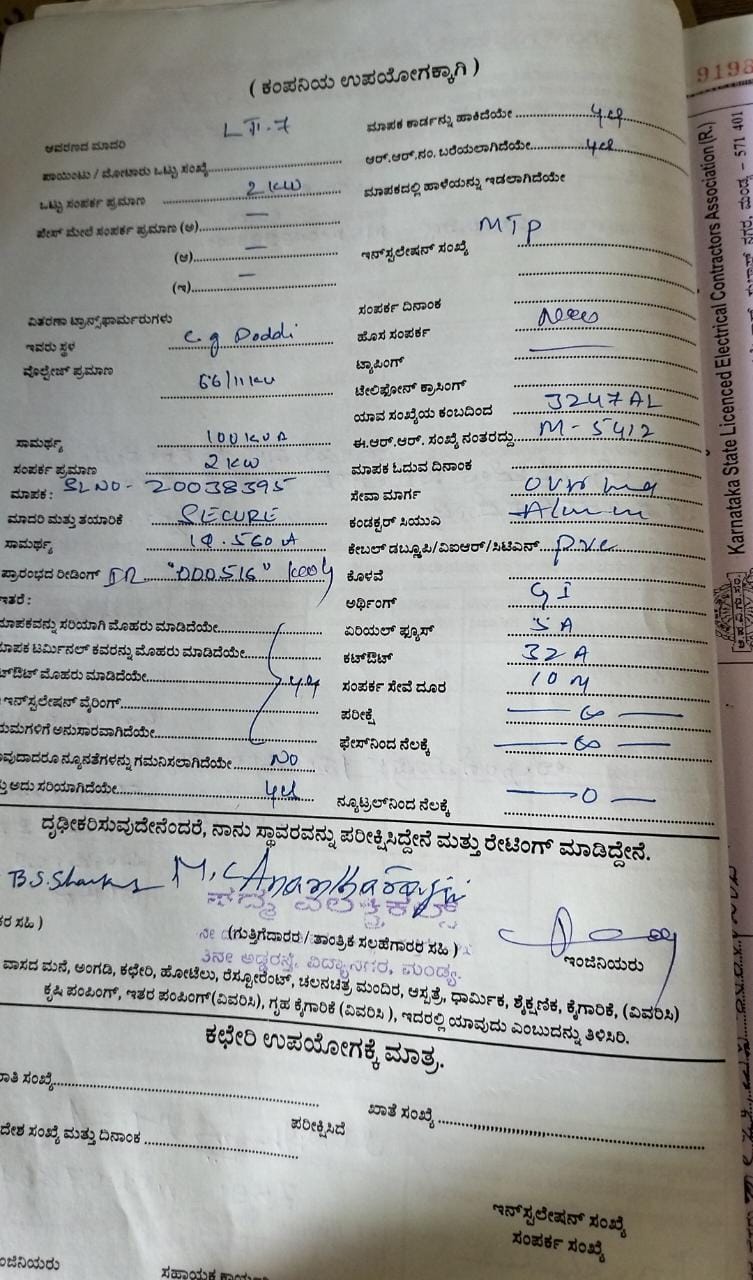 ( ಕಂಪನಿಯ ಉಪಯೋಗಕ್ಕಾಗಿ )
ಆವರಣದ ಮಾದರಿ LT-7
ಮಾಪಕ ಕಾರ್ಡನ್ನು ಹಾಕಿದೆಯೇ yes
ಪಾಯಿಂಟು / ಮೋಟಾರು ಒಟ್ಟು ಸಂಖ್ಯೆ
ಆರ್.ಆರ್.ನಂ. ಬರೆಯಲಾಗಿದೆಯೇ yes
ಒಟ್ಟು ಸಂಪರ್ಕ ಪ್ರಮಾಣ 2 KW
ಮಾಪಕದಲ್ಲಿ ಹಾಳೆಯನ್ನು ಇಡಲಾಗಿದೆಯೇ
ಫೇಸ್ ಮೇಲೆ ಸಂಪರ್ಕ ಪ್ರಮಾಣ (ಅ) —
(ಆ) —
ಇನ್‌ಸ್ಟಲೇಷನ್ ಸಂಖ್ಯೆ MTP
(ಇ) —
ವಿತರಣಾ ಟ್ರಾನ್ಸ್‌ಫಾರ್ಮರುಗಳು
ಸಂಪರ್ಕ ದಿನಾಂಕ
ಇವರು ಸ್ಥಳ C.g Doddi
ಹೊಸ ಸಂಪರ್ಕ New
ಟ್ಯಾಪಿಂಗ್ —
ವೋಲ್ಟೇಜ್ ಪ್ರಮಾಣ 66/11 KV
ಟೆಲಿಫೋನ್ ಕ್ರಾಸಿಂಗ್
ಯಾವ ಸಂಖ್ಯೆಯ ಕಂಬದಿಂದ 3247AL
ಸಾಮರ್ಥ್ಯ 100 KVA
ಈ.ಆರ್.ಆರ್. ಸಂಖ್ಯೆ ನಂತರದ್ದು M-5412
ಸಂಪರ್ಕ ಪ್ರಮಾಣ 2 KW
ಮಾಪಕ ಓದುವ ದಿನಾಂಕ
ಮಾಪಕ : SLNO- 20038395
ಸೇವಾ ಮಾರ್ಗ
ಮಾದರಿ ಮತ್ತು ತಯಾರಿಕೆ SECURE
ಕಂಡಕ್ಟರ್ ಸಿಯುಎ
ಸಾಮರ್ಥ್ಯ
ಕೇಬಲ್ ಡಬ್ಲ್ಯೂಪಿ/ವಿಐಆರ್/ಸಿಟಿಎಸ್ pvc
ಪ್ರಾರಂಭದ ರೀಡಿಂಗ್ "000516"
ಕೊಳವೆ
ಇತರೆ :
ಅರ್ಥಿಂಗ್ GI
ಮಾಪಕವನ್ನು ಸರಿಯಾಗಿ ಮೊಹರು ಮಾಡಿದೆಯೇ
ಏರಿಯಲ್ ಫ್ಯೂಸ್ 5A
ಮಾಪಕ ಟರ್ಮಿನಲ್ ಕವರನ್ನು ಮೊಹರು ಮಾಡಿದೆಯೇ
ಕಟ್‌ಔಟ್ 32A
ಟ್‌ಔಟ್ ಮೊಹರು ಮಾಡಿದೆಯೇ yes
ಸಂಪರ್ಕ ಸೇವೆ ದೂರ 10 M
ಇನ್‌ಸ್ಟಲೇಷನ್ ವೈರಿಂಗ್
ಪರೀಕ್ಷೆ — ∞ —
ಯಮಗಳಿಗೆ ಅನುಸಾರವಾಗಿದೆಯೇ
ಫೇಸ್‌ನಿಂದ ನೆಲಕ್ಕೆ — ∞ —
ವುದಾದರೂ ನ್ಯೂನತೆಗಳನ್ನು ಗಮನಿಸಲಾಗಿದೆಯೇ No
ತ್ತು ಅದು ಸರಿಯಾಗಿದೆಯೇ yes
ನ್ಯೂಟ್ರಲ್‌ನಿಂದ ನೆಲಕ್ಕೆ — 0 —
ದೃಢೀಕರಿಸುವುದೇನೆಂದರೆ, ನಾನು ಸ್ಥಾವರವನ್ನು ಪರೀಕ್ಷಿಸಿದ್ದೇನೆ ಮತ್ತು ರೇಟಿಂಗ್ ಮಾಡಿದ್ದೇನೆ.
ರ ಸಹಿ )
(ಗುತ್ತಿಗೆದಾರರ / ತಾಂತ್ರಿಕ ಸಲಹೆಗಾರರ ಸಹಿ )
ಇಂಜಿನಿಯರು
ವಿದ್ಯಾನಗರ, ಮಂಡ್ಯ.
ವಾಸದ ಮನೆ, ಅಂಗಡಿ, ಕಛೇರಿ, ಹೋಟೆಲು, ರೆಸ್ಟೋರೆಂಟ್, ಚಲನಚಿತ್ರ ಮಂದಿರ, ಆಸ್ಪತ್ರೆ, ಧಾರ್ಮಿಕ, ಶೈಕ್ಷಣಿಕ, ಕೈಗಾರಿಕೆ, (ವಿವರಿಸಿ)
ಕೃಷಿ ಪಂಪಿಂಗ್, ಇತರ ಪಂಪಿಂಗ್(ವಿವರಿಸಿ), ಗೃಹ ಕೈಗಾರಿಕೆ (ವಿವರಿಸಿ ), ಇದರಲ್ಲಿ ಯಾವುದು ಎಂಬುದನ್ನು ತಿಳಿಸಿರಿ.
ಕಛೇರಿ ಉಪಯೋಗಕ್ಕೆ ಮಾತ್ರ.
ಾತಿ ಸಂಖ್ಯೆ
ಖಾತೆ ಸಂಖ್ಯೆ
ದೇಶ ಸಂಖ್ಯೆ ಮತ್ತು ದಿನಾಂಕ
ಪರೀಕ್ಷಿಸಿದೆ
ಇನ್‌ಸ್ಟಲೇಷನ್ ಸಂಖ್ಯೆ
ಸಂಪರ್ಕ ಸಂಖ್ಯೆ
ಂಜಿನಿಯರು
9198
Karnataka State Licenced Electrical Contractors Association (R.)
ನಗರ, ಮಂಡ್ಯ - 571 401